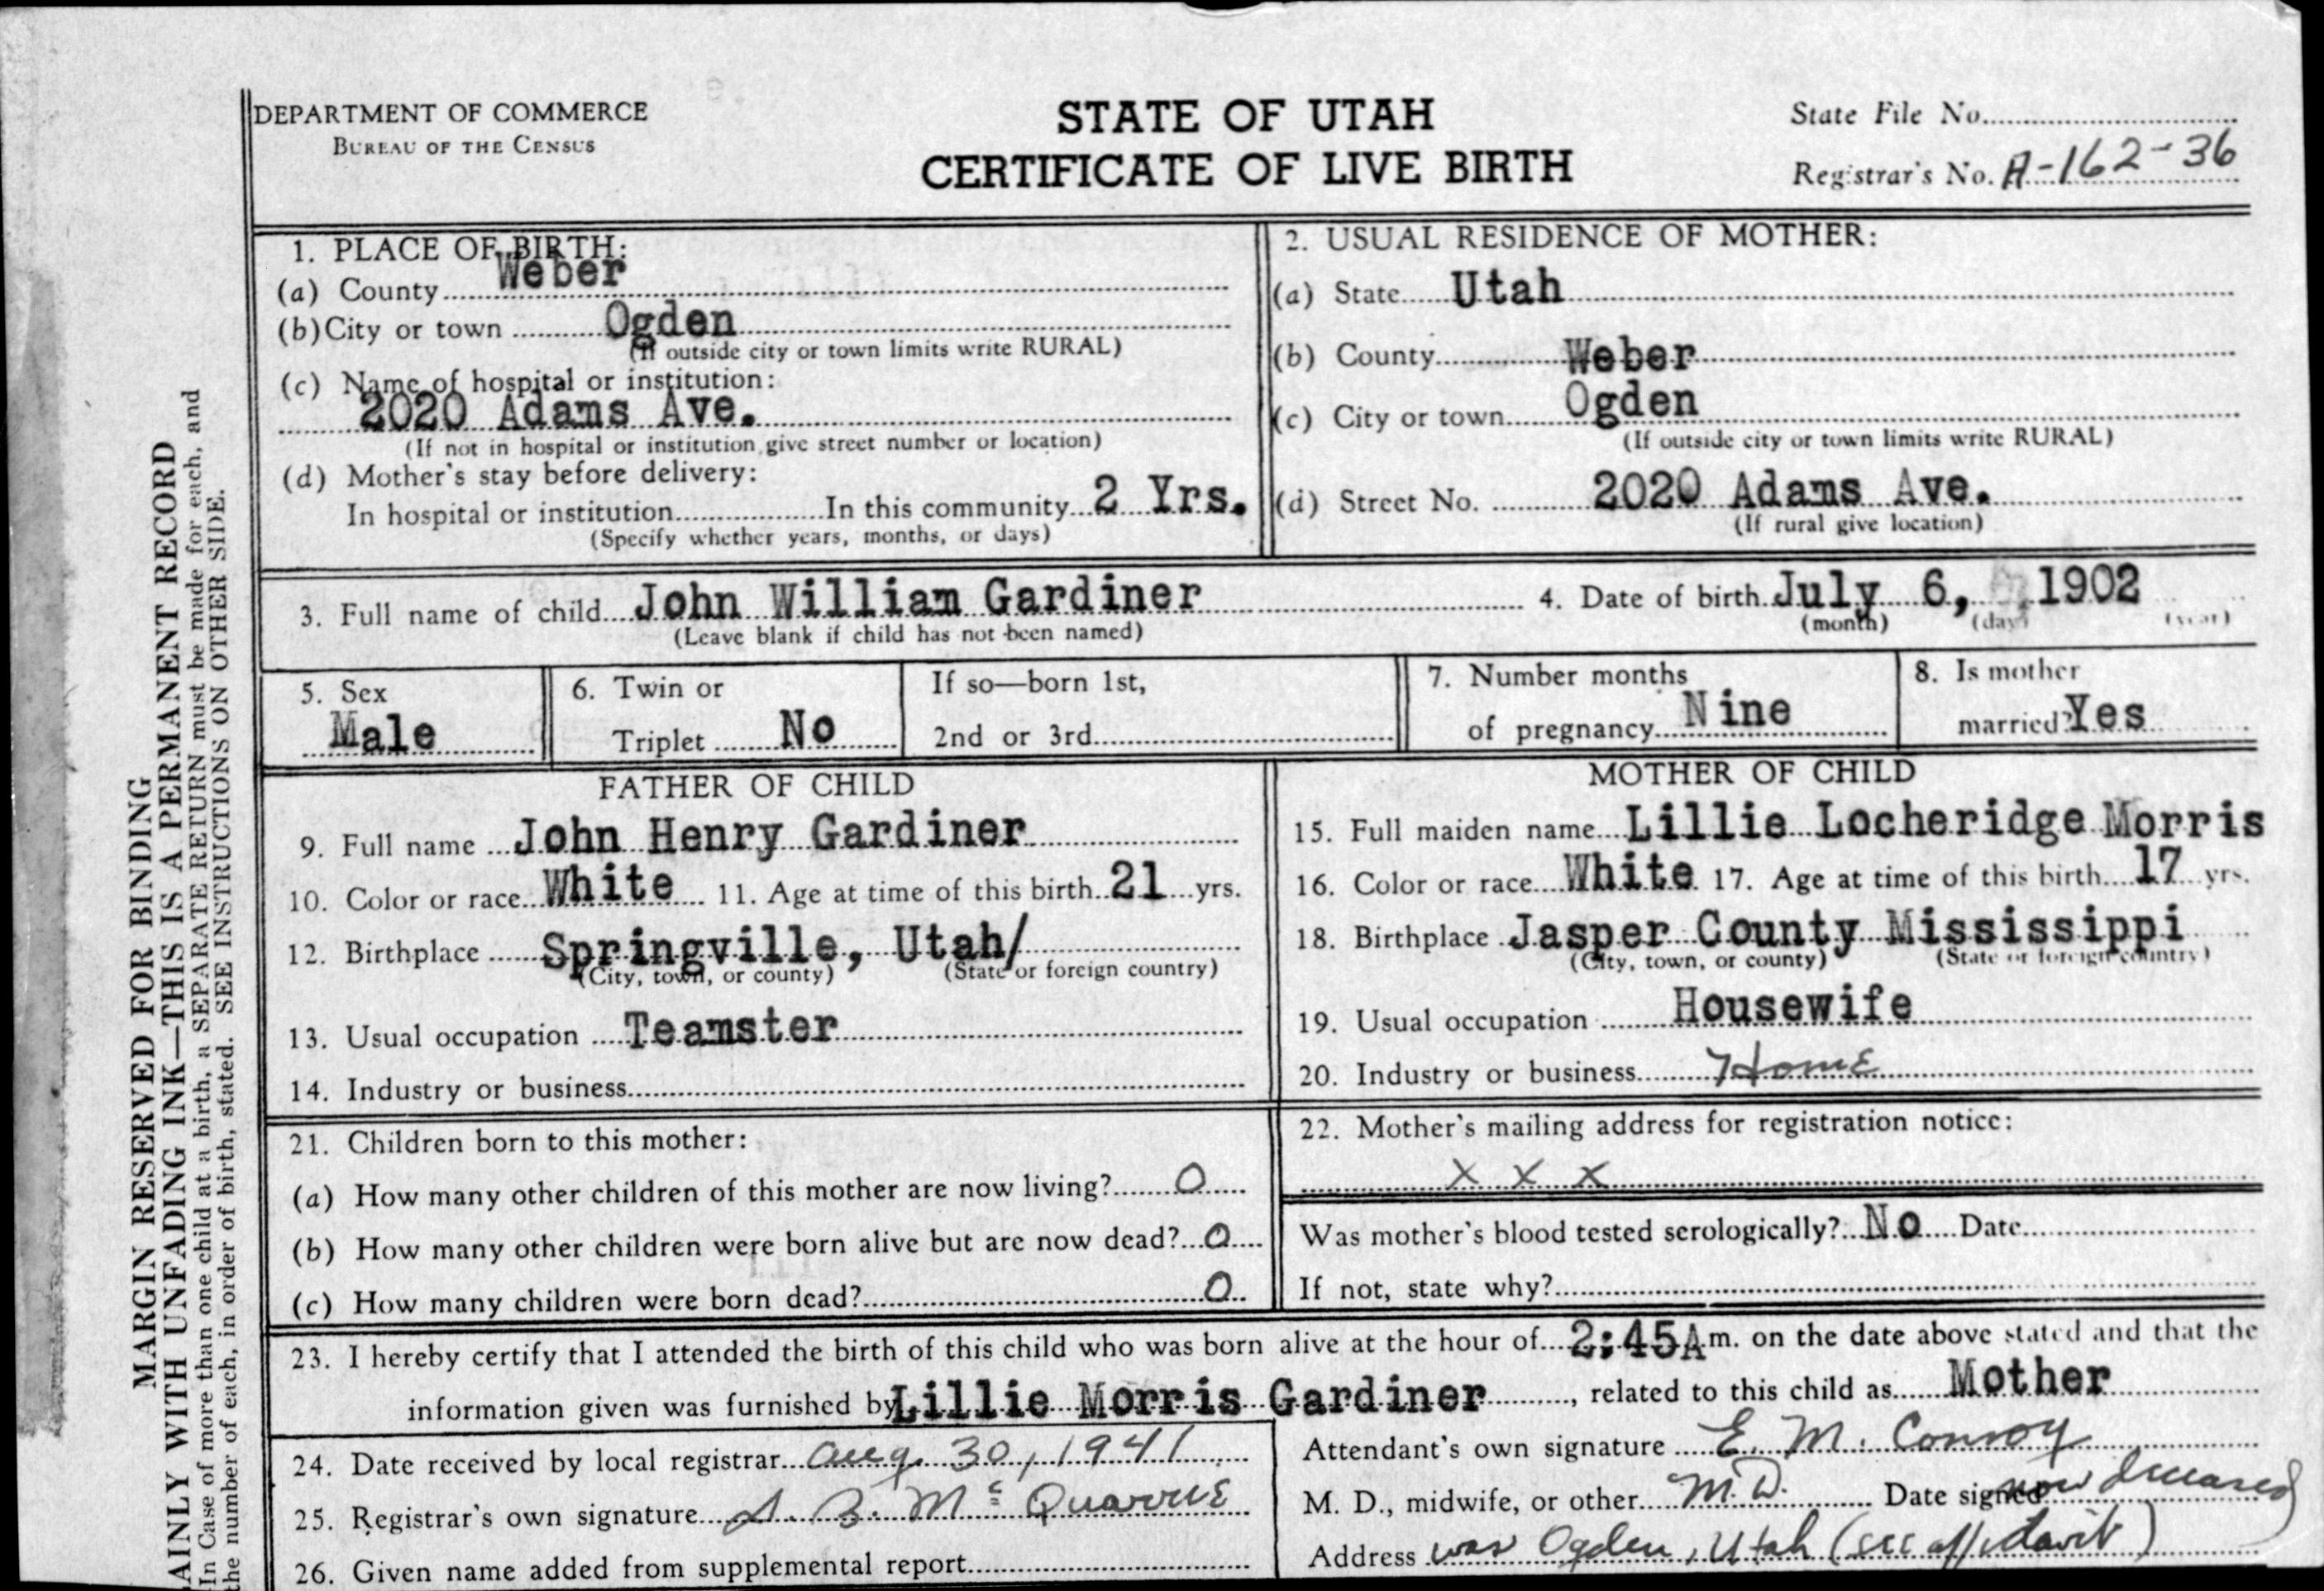 DEPARTMENT OF COMMERCE
BUREAU OF THE CENSUS
STATE OF UTAH
CERTIFICATE OF LIVE BIRTH
State File No.
Registrar's No. A-162-36
MARGIN RESERVED FOR BINDING
AINLY WITH UNFADING INK—THIS IS A PERMANENT RECORD
In Case of more than one child at a birth, a SEPARATE RETURN must be made for each, and
the number of each, in order of birth, stated. SEE INSTRUCTIONS ON OTHER SIDE.
1. PLACE OF BIRTH:
(a) County Weber
(b) City or town Ogden
(If outside city or town limits write RURAL)
(c) Name of hospital or institution:
2020 Adams Ave.
(If not in hospital or institution give street number or location)
(d) Mother's stay before delivery:
In hospital or institution In this community 2 Yrs.
(Specify whether years, months, or days)
2. USUAL RESIDENCE OF MOTHER:
(a) State Utah
(b) County Weber
(c) City or town Ogden
(If outside city or town limits write RURAL)
(d) Street No. 2020 Adams Ave.
(If rural give location)
3. Full name of child John William Gardiner
(Leave blank if child has not been named)
4. Date of birth July 6, 1902
(month) (day) (year)
5. Sex
Male
6. Twin or
Triplet No
If so—born 1st,
2nd or 3rd
7. Number months
of pregnancy Nine
8. Is mother
married? Yes
FATHER OF CHILD
9. Full name John Henry Gardiner
10. Color or race White 11. Age at time of this birth 21 yrs.
12. Birthplace Springville, Utah/
(City, town, or county) (State or foreign country)
13. Usual occupation Teamster
14. Industry or business
MOTHER OF CHILD
15. Full maiden name Lillie Locheridge Morris
16. Color or race White 17. Age at time of this birth 17 yrs.
18. Birthplace Jasper County Mississippi
(City, town, or county) (State or foreign country)
19. Usual occupation Housewife
20. Industry or business Home
21. Children born to this mother:
(a) How many other children of this mother are now living? 0
(b) How many other children were born alive but are now dead? 0
(c) How many children were born dead? 0
22. Mother's mailing address for registration notice:
x x x
Was mother's blood tested serologically? No Date
If not, state why?
23. I hereby certify that I attended the birth of this child who was born alive at the hour of 2:45A m. on the date above stated and that the
information given was furnished by Lillie Morris Gardiner, related to this child as Mother
24. Date received by local registrar Aug. 30, 1941
25. Registrar's own signature McQuarrie
26. Given name added from supplemental report
Attendant's own signature E. M. Conroy
M. D., midwife, or other M.D. Date signed now deceased
Address was Ogden, Utah (see affidavit)